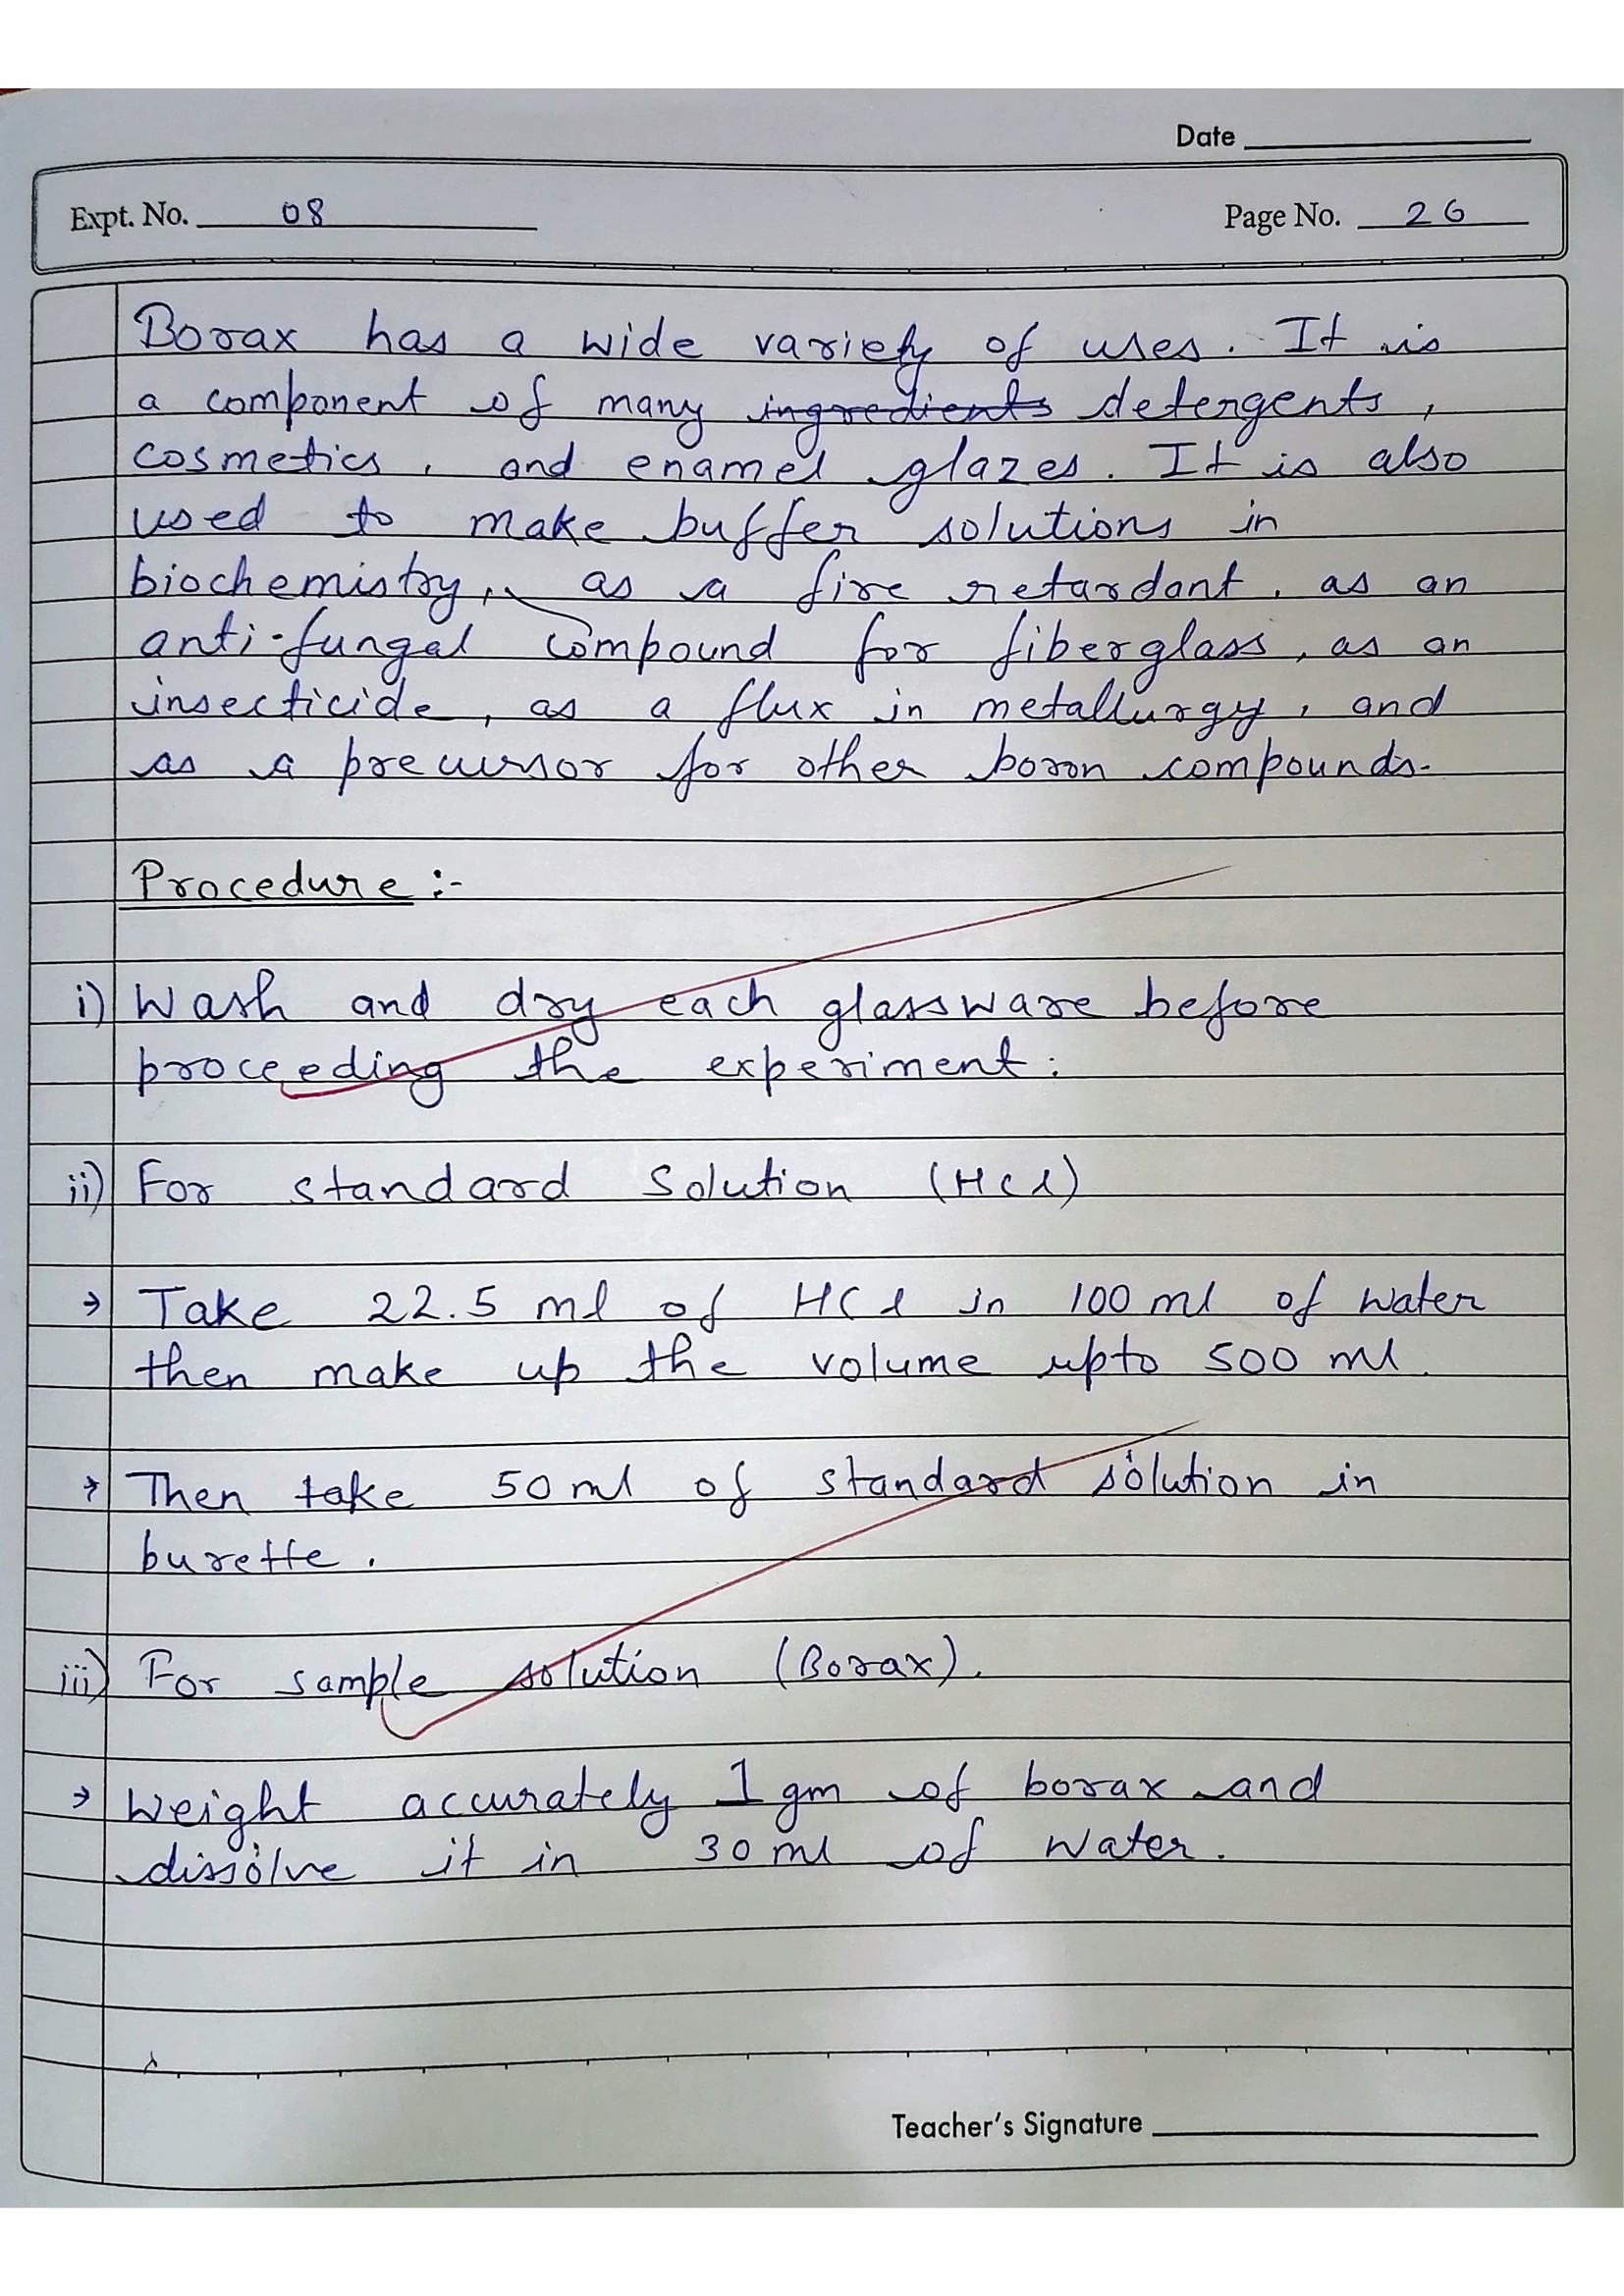 Date
Expt. No. 08
Page No. 26
Borax has a wide variety of uses. It is
a component of many ingredients detergents,
cosmetics, and enamel glazes. It is also
used to make buffer solutions in
biochemistry, as a fire retardant, as an
anti-fungal compound for fiberglass, as an
insecticide, as a flux in metallurgy, and
as a precursor for other boron compounds.
Procedure :-
i) Wash and dry each glassware before
proceeding the experiment.
ii) For standard Solution (HCl)
→ Take 22.5 ml of HCl in 100 ml of water
then make up the volume upto 500 ml.
→ Then take 50 ml of standard solution in
burette.
iii) For sample solution (Borax).
→ Weight accurately 1 gm of borax and
dissolve it in 30 ml of water.
Teacher's Signature